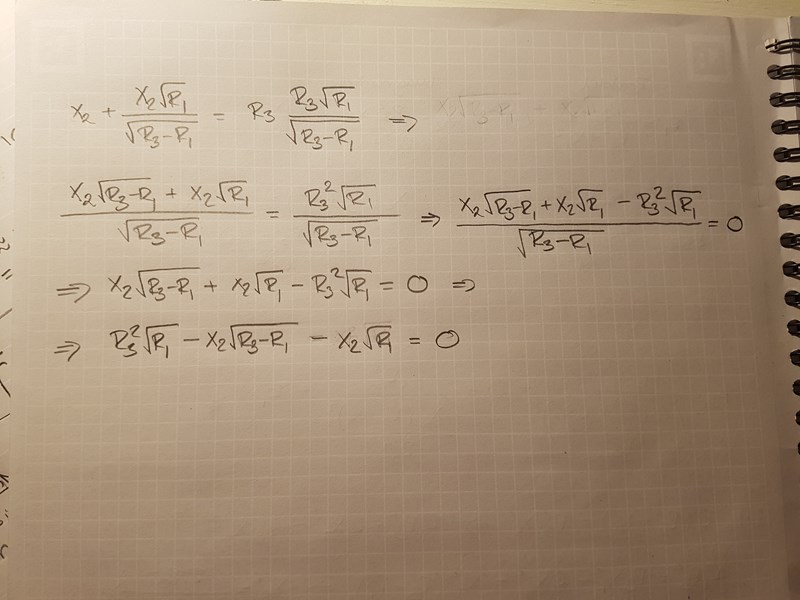 x₂ + x₂√R₁ / √(R₃-R₁) = R₃ R₃√R₁ / √(R₃-R₁) ⇒
(x₂√(R₃-R₁) + x₂√R₁) / √(R₃-R₁) = R₃²√R₁ / √(R₃-R₁) ⇒ (x₂√(R₃-R₁) + x₂√R₁ - R₃²√R₁) / √(R₃-R₁) = 0
⇒ x₂√(R₃-R₁) + x₂√R₁ - R₃²√R₁ = 0 ⇒
⇒ R₃²√R₁ - x₂√(R₃-R₁) - x₂√R₁ = 0